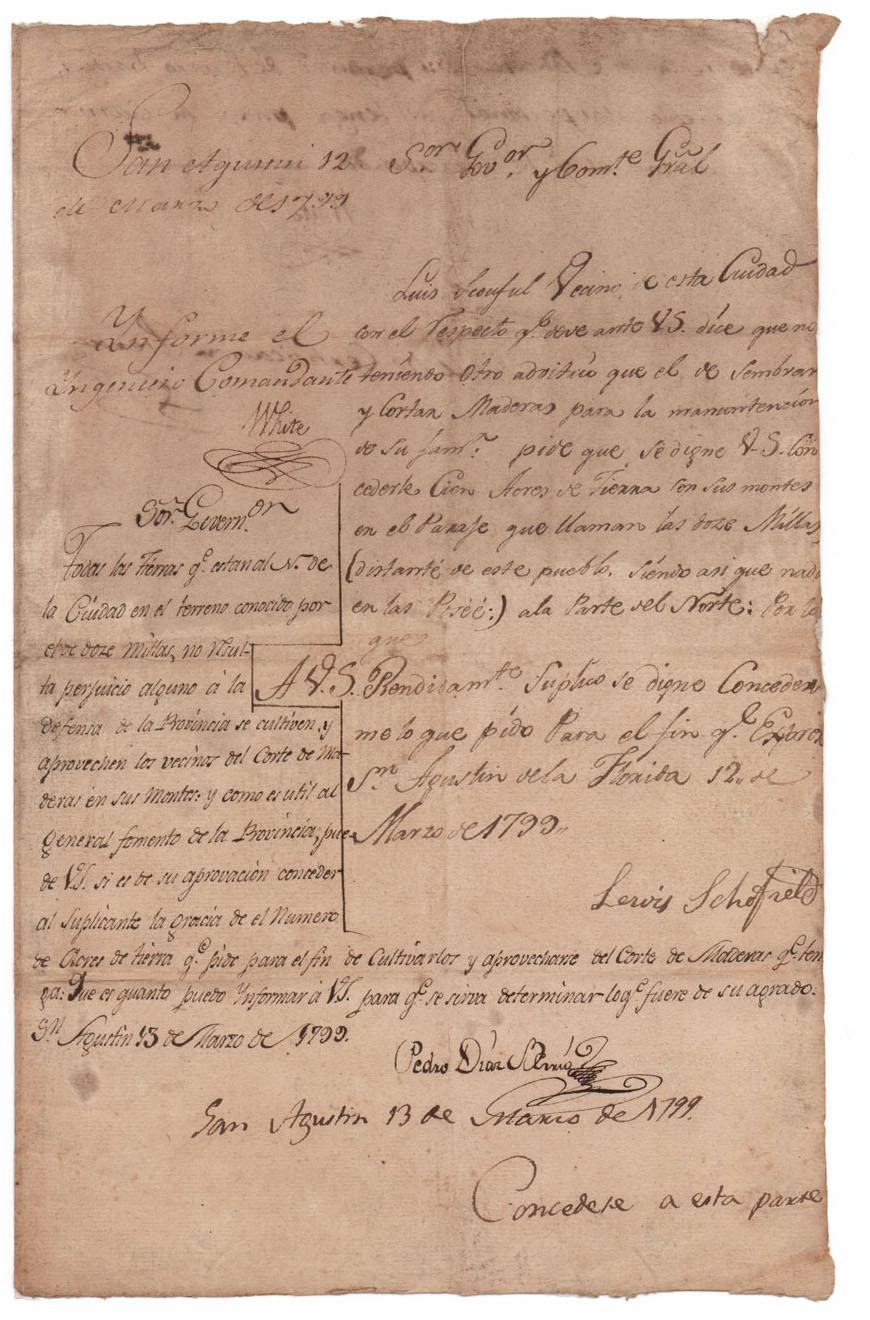 San Agustin 12
de Marzo de 1799
Sor. Govor. y Comte. Gral
Informe el
Ingeniero Comandante
White
Luis Scouful Vecino de esta Ciudad
con el respecto qe. deve ante V.S. dice que no
teniendo otro advitrio que el de sembrar
y Cortar Maderas para la manuntencion
de su fama. pide que se digne V.S. Con
cederle Cien Acres de Tierra con sus montes
en el Paraje que llaman las doze Millas
(distante de este pueblo, siendo asi que nada
en las Poséé:) a la Parte del Norte: Por lo
que
A V.S. Rendidamte. Suplico se digne Conceder
me lo que pido Para el fin qe. Expreso
Sn. Agustin de la Florida 12,, de
Marzo de 1799,,
Lewis Schofield
Sor. Governor.
Todas las Tierras qe. estan al N. de
la Ciudad en el terreno conocido por
el de doze millas, no resul-
ta perjuicio alguno à la
defensa de la Provincia se cultiven, y
aprovechen los vecinos del Corte de Ma-
deras en sus Montes: y como es util al
General fomento de la Provincia, pue-
de V.S. si es de su aprovacion conceder
al suplicante la gracia de el Numero
de Acres de tierra qe. pide para el fin de Cultivarlos y aprovecharse del Corte de Maderas qe. ten
ga: Que es quanto puedo Ynformar à V.S. para qe. se sirva determinar lo qe. fuere de su agrado:
Sn. Agustin 13 de Marzo de 1799.
Pedro Diaz Berrio
San Agustin 13 de Marzo de 1799.
Concedese a esta parte